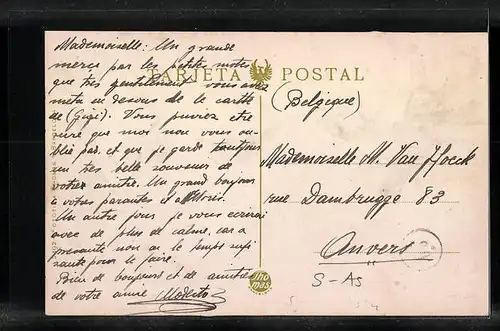 Mademoiselle: Un grande
merci par les petites notes
que très gentilement vous avez
meta en desous de le cartte
de (Gugi). Vous pouvez etre
sure que moi non vous ou-
blié pas, et que je garde toutjours
un tres belle souvenir de
votres amitré. Un grand bonjour
à votres parantes et a
Un autre jour je vous ecrirai
avec de plus de calme, car a
presante non ai le temps sufi
sante pour le faire.
Bien de bonjours et de amities
de votre amie Modesto
TARJETA POSTAL
(Belgique)
Mademoiselle M. Van
rue Dambrugge 83
Anvers
S-As
Thomas